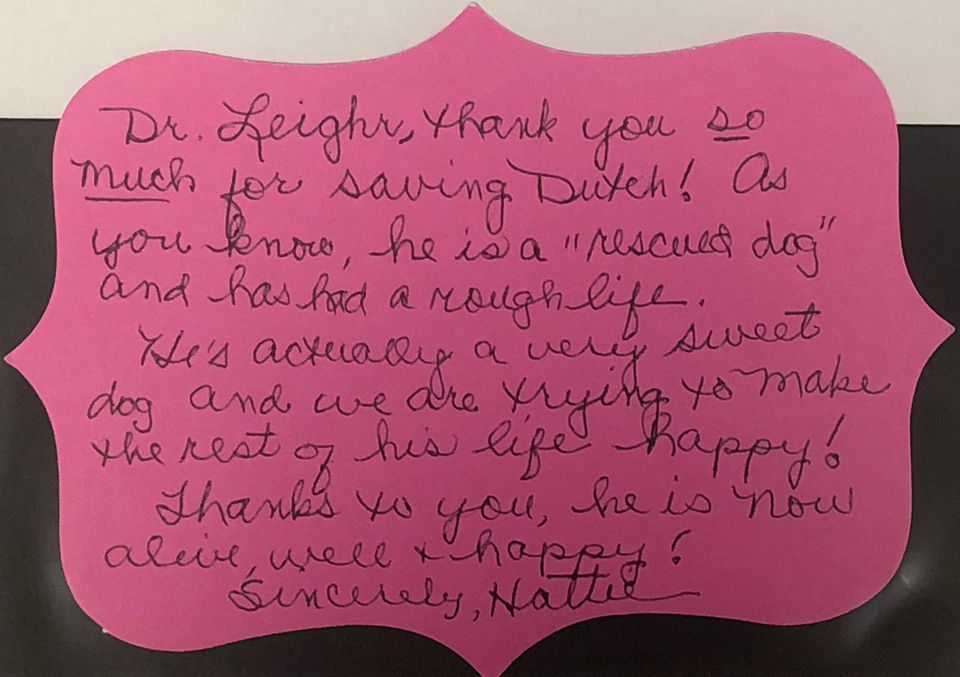 Dr. Leighr, thank you so
much for saving Dutch! As
you know, he is a "rescued dog"
and has had a rough life.
He's actually a very sweet
dog and we are trying to make
the rest of his life happy!
Thanks to you, he is now
alive, well + happy!
Sincerely, Hattie